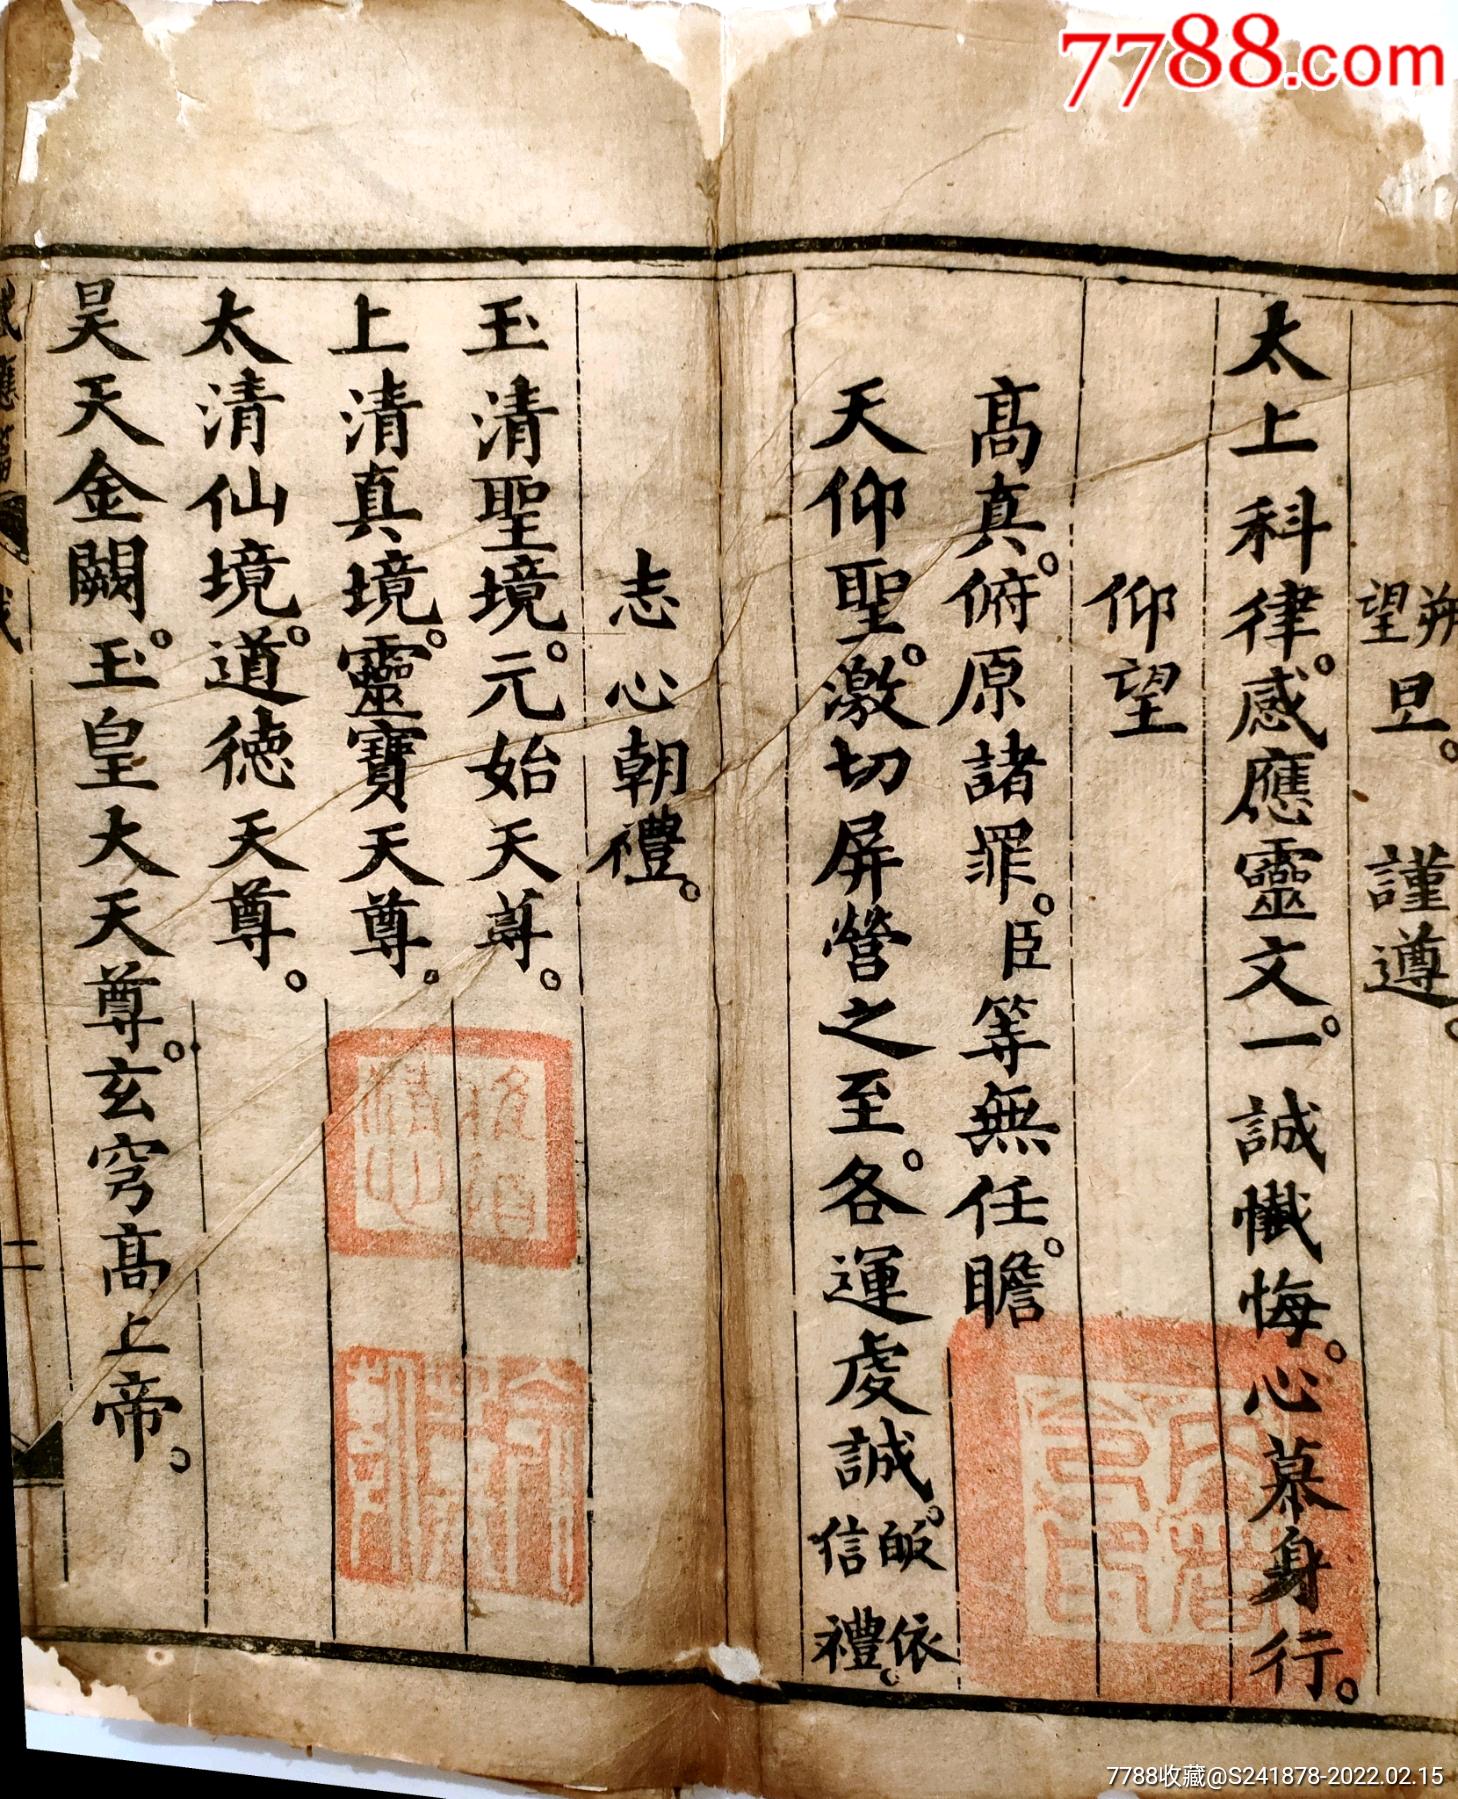 7788.com
朔望旦。謹遵。
太上科律。感應靈文。一誠懺悔。心慕身行。
仰望
高真。俯原諸罪。臣等無任。瞻
天仰聖。激切屏營之至。各運虔誠。皈依信禮。
志心朝禮。
玉清聖境。元始天尊。
上清真境。靈寶天尊。
太清仙境。道德天尊。
昊天金闕。玉皇大天尊。玄穹高上帝。
感應篇
二
7788收藏@S241878-2022.02.15